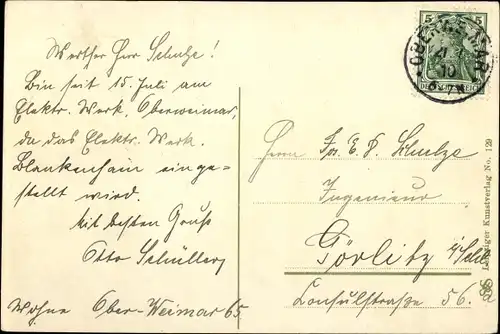 Werther Herr Schulze!
Bin seit 15. Juli am
Elektr. Werk. Oberweimar,
da das Elektr. Werk.
Blankenhain einge-
stellt wird.
Mit besten Gruss
Otto Schüller
Wohne Ober-Weimar 65
5 5
DEUTSCHES REICH
OBERWEIMAR
10
Herrn
Schulze
Ingenieur
Görlitz i/Schl.
Consulstraße 56.
Leipziger Kunstverlag No. 129